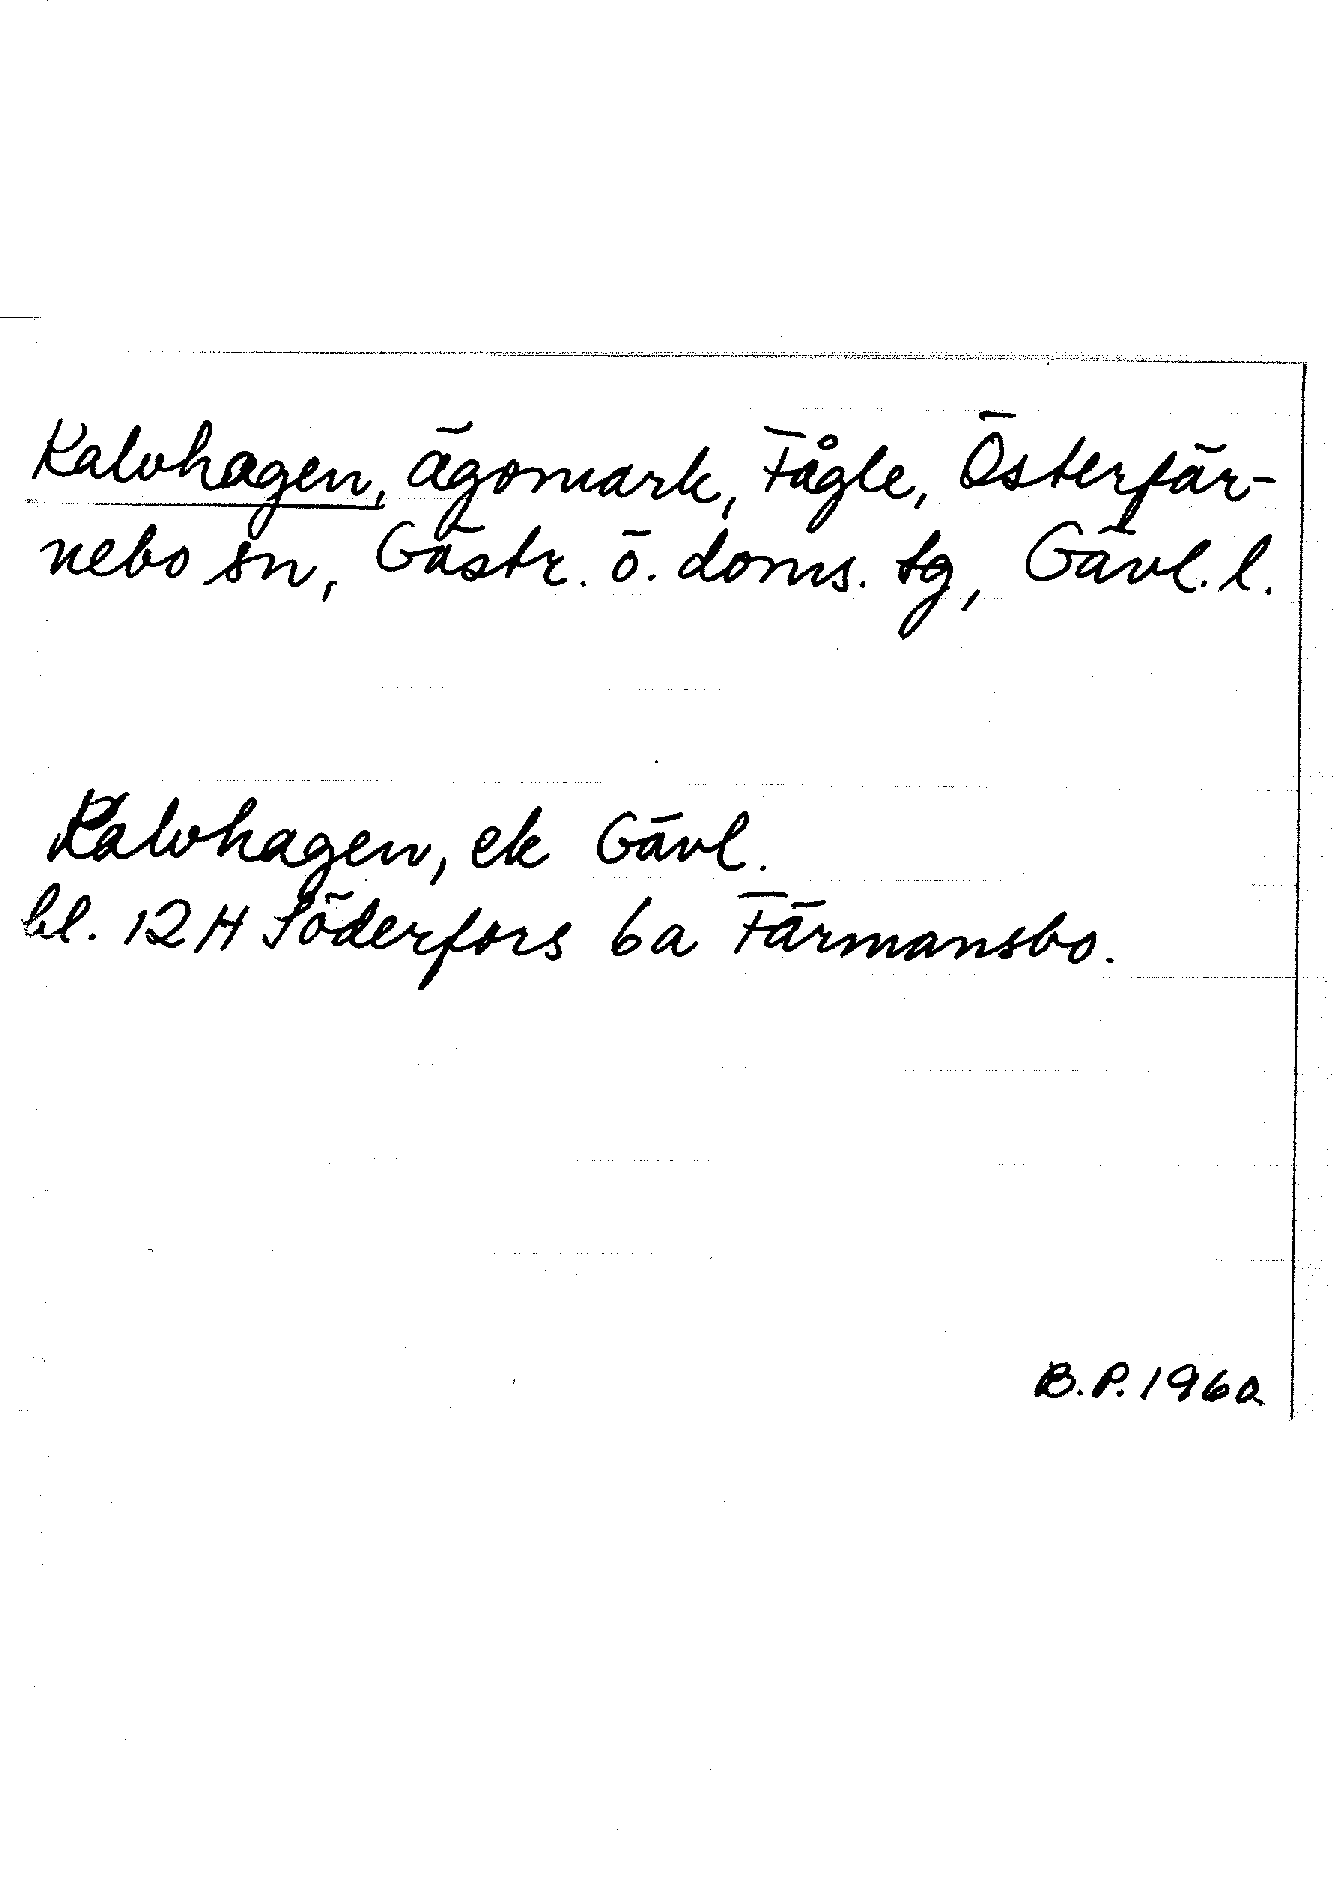 Kalvhagen, ägomark, Fågle, Österfär-
nebo sn, Gästr. ö. doms. tg, Gävl. l.
Kalvhagen, ek Gävl.
bl. 12H Söderfors 6a Färmansbo.
B.P. 1960